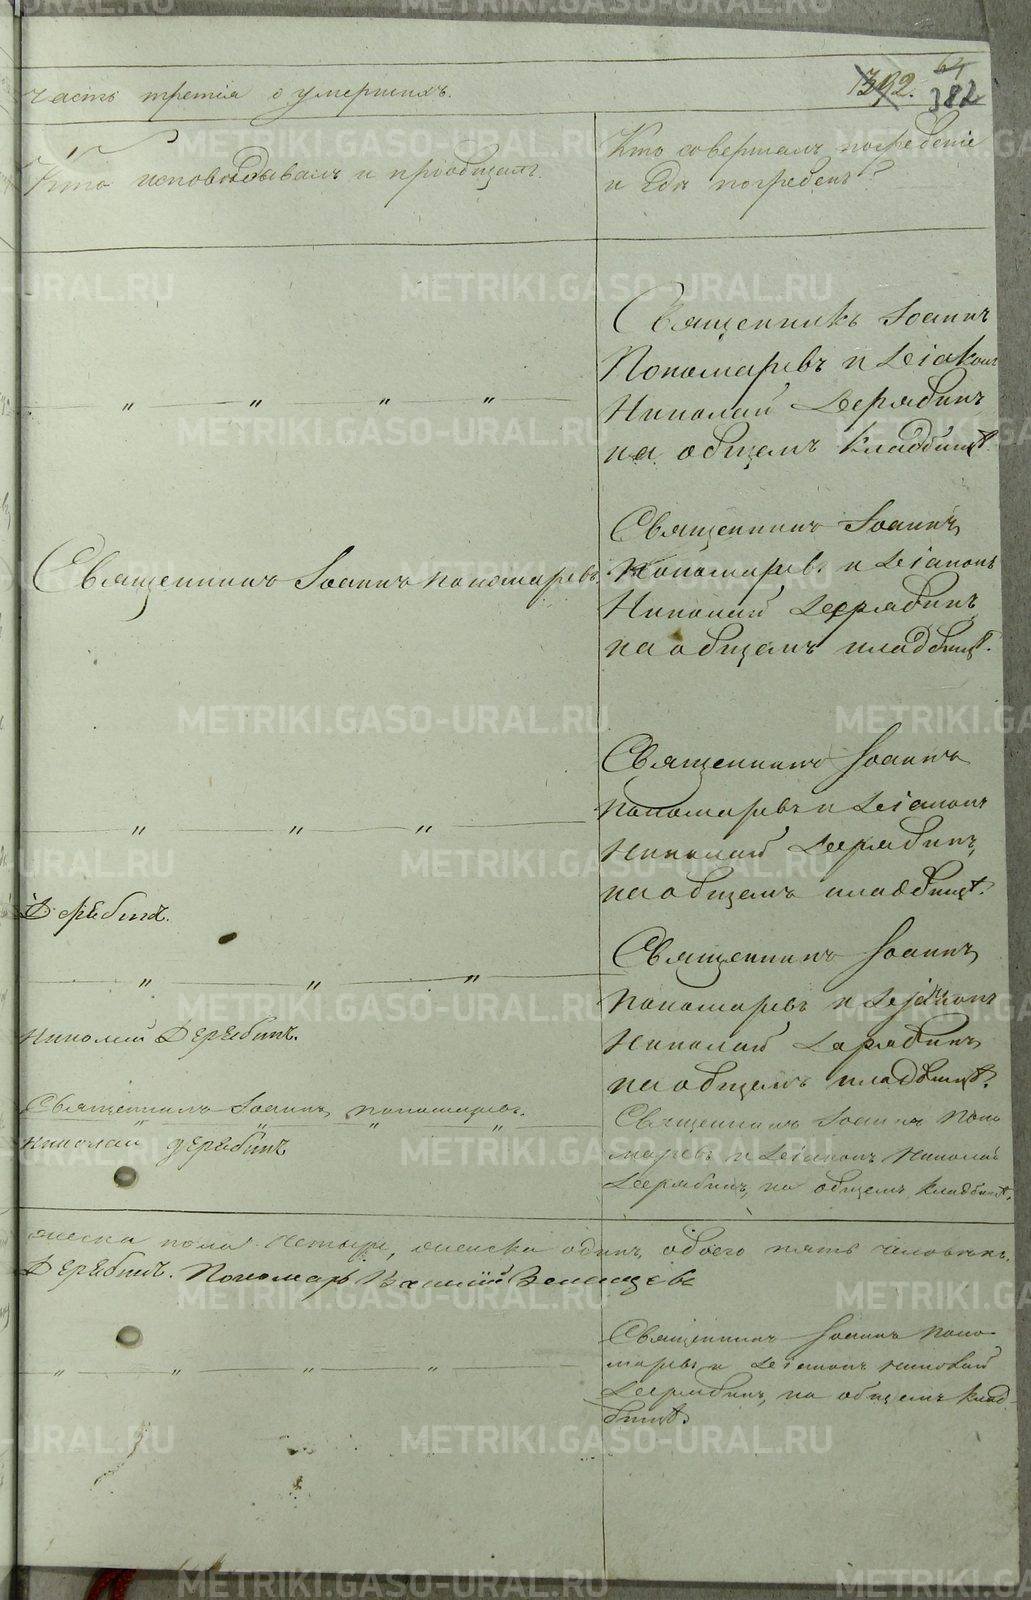 Часть третія о умершихъ.
1392. 64
382
Кто исповѣдывалъ и пріобщалъ.
Кто совершалъ погребеніе
и гдѣ погребенъ?
Священникъ Іоаннъ
Пономаревъ и Діаконъ
Николай Дерябинъ
на общемъ кладбищѣ.
Священникъ Іоаннъ Пономаревъ.
Священникъ Іоаннъ
Пономаревъ и Діаконъ
Николай Дерябинъ
на общемъ кладбищѣ.
Священникъ Іоаннъ
Пономаревъ и Діаконъ
Николай Дерябинъ,
на общемъ кладбищѣ.
Дерябинъ.
Священникъ Іоаннъ
Пономаревъ и Діаконъ
Николай Дерябинъ
на общемъ кладбищѣ.
Николай Дерябинъ.
Священникъ Іоаннъ Пономаревъ.
Николай Дерябинъ
Священникъ Іоаннъ Поно
маревъ и Діаконъ Николай
Дерябинъ, на общемъ кладбищѣ.
мужеска пола четыре, женска одинъ, обоего пять человѣкъ.
Дерябинъ. Пономарь
Священникъ Іоаннъ Поно
маревъ и Діаконъ Николай
Дерябинъ, на общемъ клад-
бищѣ.
METRIKI.GASO-URAL.RU